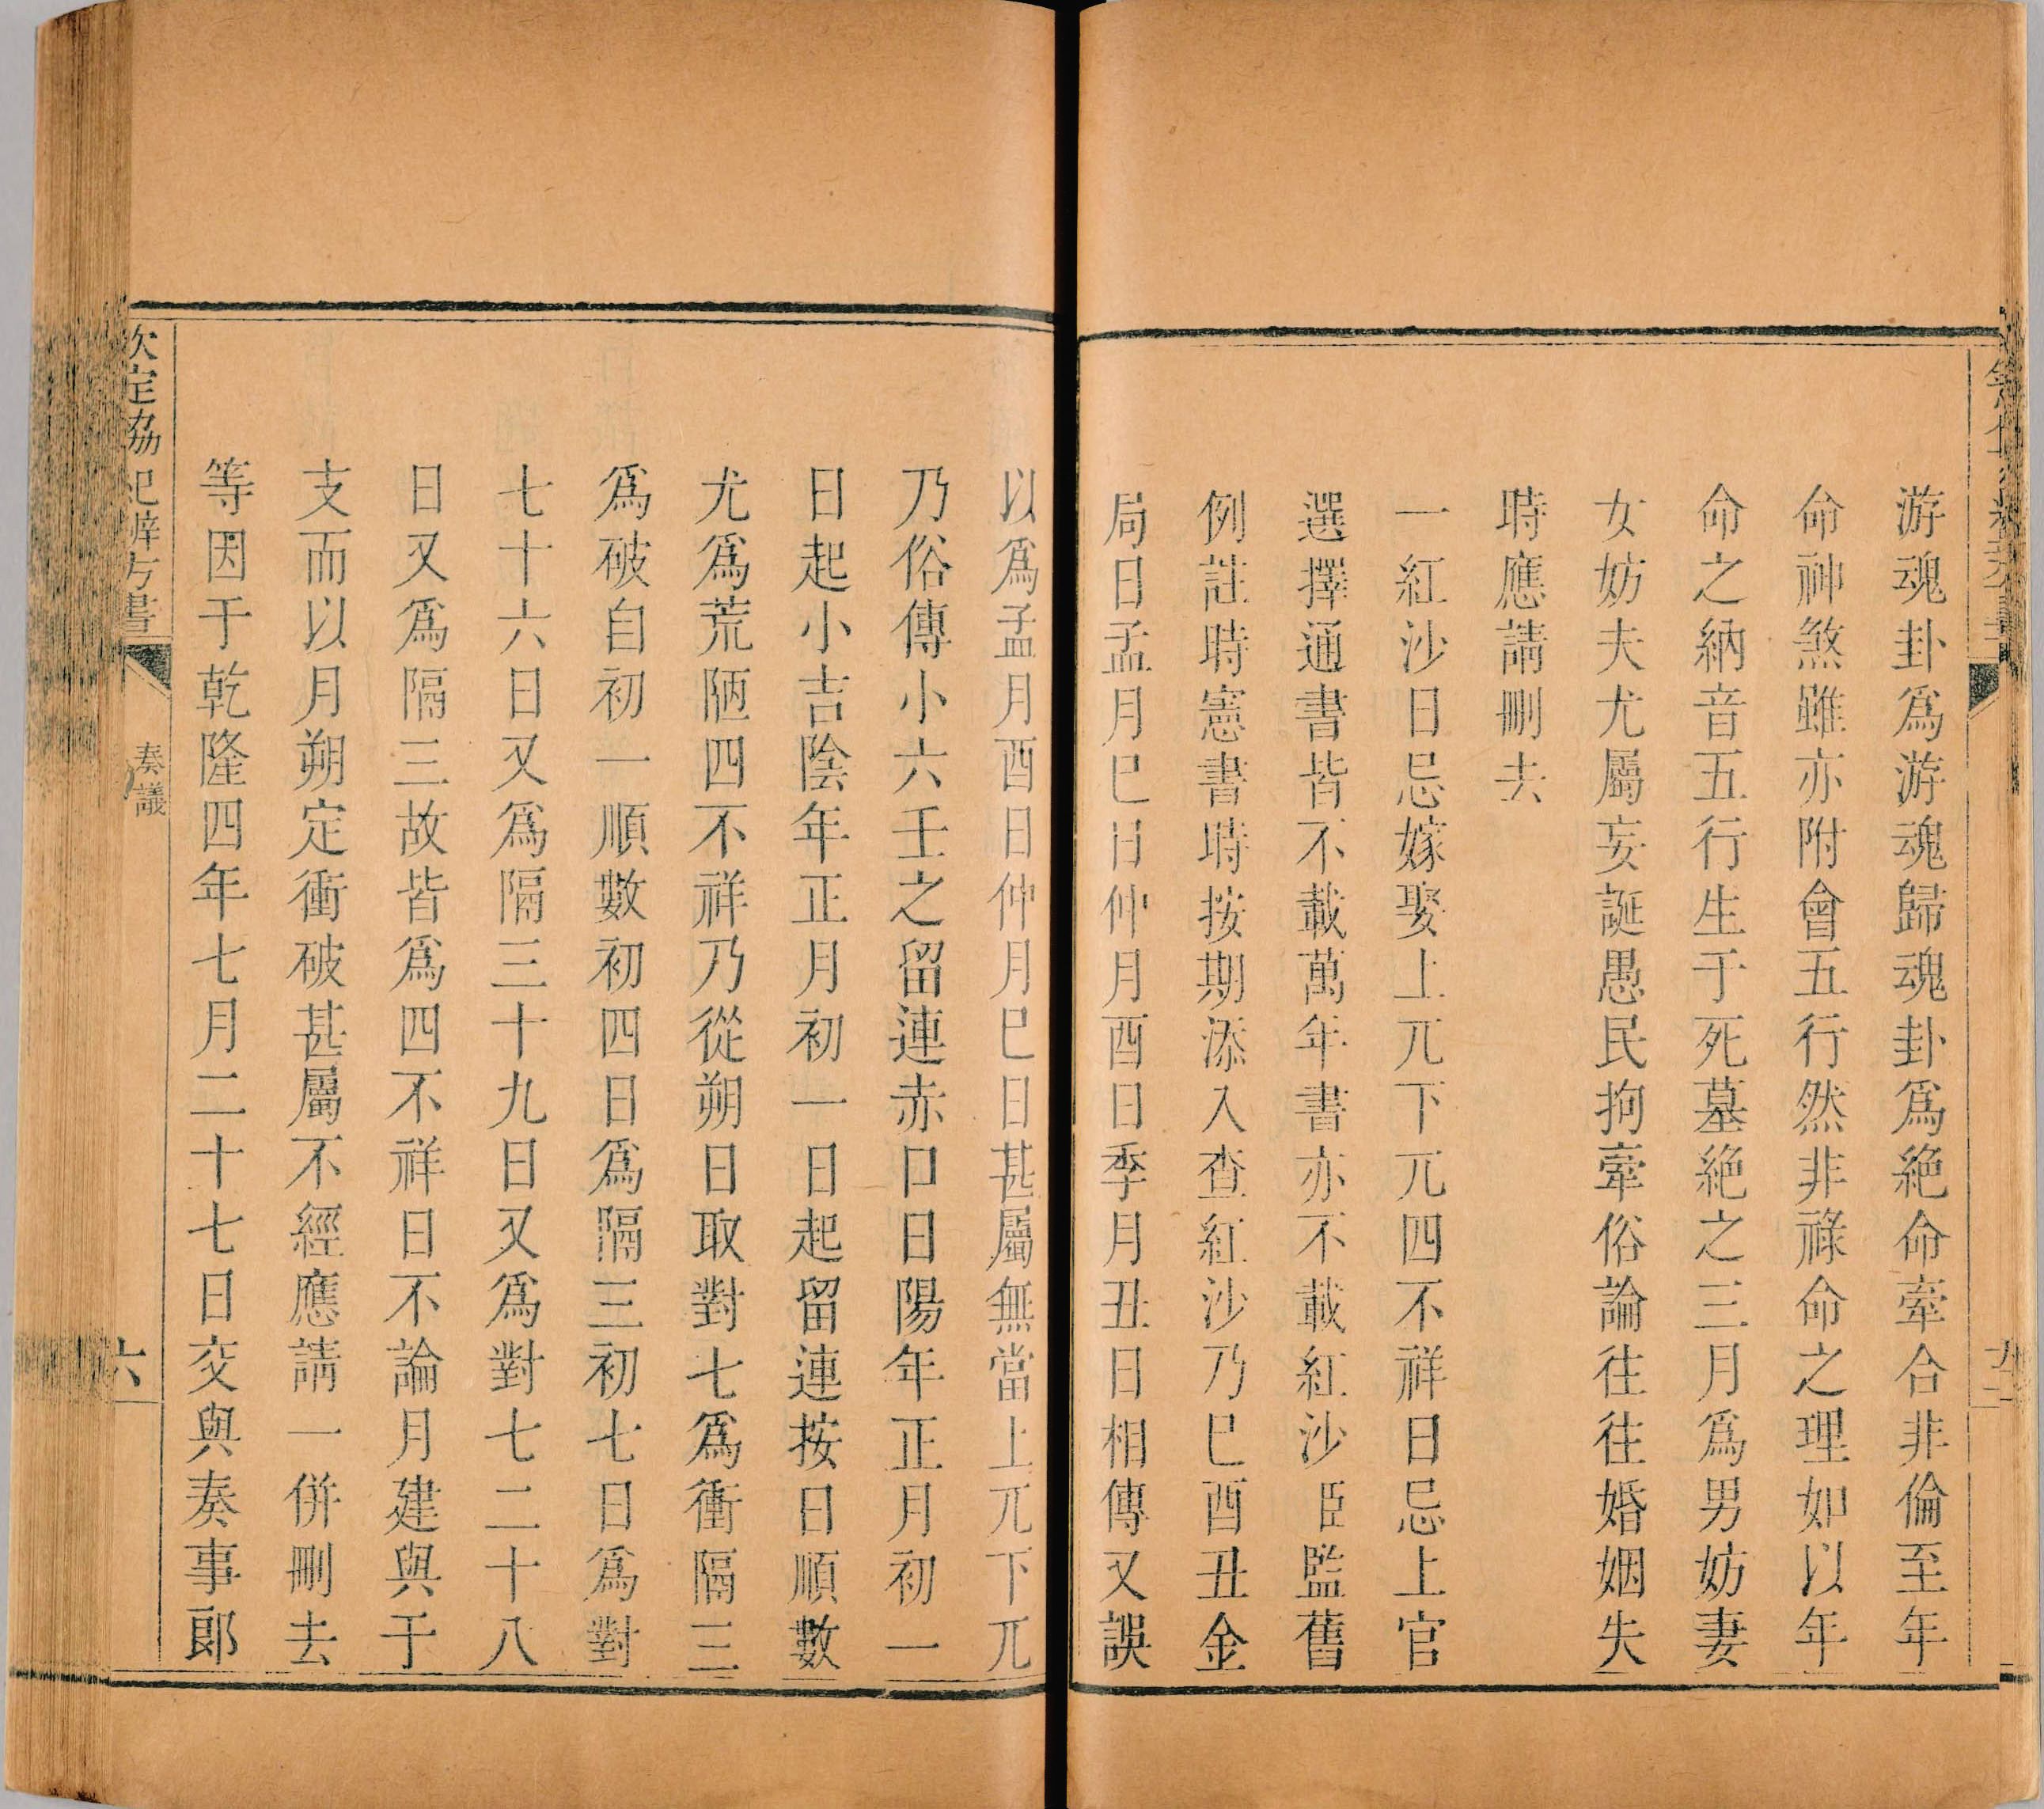 游魂卦爲游魂歸魂卦爲絶命牽合非倫至年
命神煞雖亦附會五行然非祿命之理如以年
命之納音五行生于死墓絶之三月爲男妨妻
女妨夫尤屬妄誕愚民拘牽俗論往往婚姻失
時應請刪去
一紅沙日忌嫁娶上兀下兀四不祥日忌上官
選擇通書皆不載萬年書亦不載紅沙臣監舊
例註時憲書時按期添入查紅沙乃巳酉丑金
局日孟月巳日仲月酉日季月丑日相傳又誤
以爲孟月酉日仲月巳日甚屬無當上兀下兀
乃俗傳小六壬之留連赤口日陽年正月初一
日起小吉陰年正月初一日起留連按日順數
尤爲荒陋四不祥乃從朔日取對七爲衝隔三
爲破自初一順數初四日爲隔三初七日爲對
七十六日又爲隔三十九日又爲對七二十八
日又爲隔三故皆爲四不祥日不論月建與于
支而以月朔定衝破甚屬不經應請一併刪去
等因于乾隆四年七月二十七日交與奏事郎
欽定協紀辨方書
奏議
六